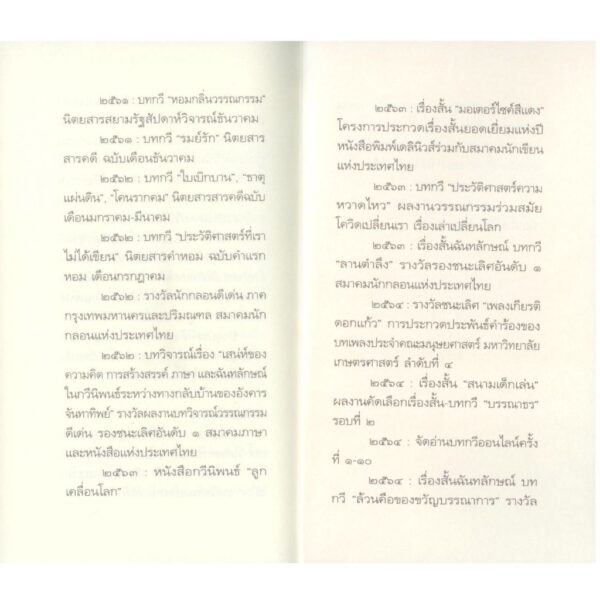 ๒๕๖๑ : บทกวี "หอมกลิ่นวรรณกรรม"
นิตยสารสยามรัฐสัปดาห์วิจารณ์ธันวาคม
๒๕๖๑ : บทกวี "รมย์รัก" นิตยสาร
สารคดี ฉบับเดือนธันวาคม
๒๕๖๒ : บทกวี "ใบเบิกบาน", "ธาตุ
แผ่นดิน", "โคนรากคม" นิตยสารสารคดีฉบับ
เดือนมกราคม-มีนาคม
๒๕๖๒ : บทกวี "ประวัติศาสตร์ที่เรา
ไม่ได้เขียน" นิตยสารคำหอม ฉบับคำแรก
หอม เดือนกรกฎาคม
๒๕๖๒ : รางวัลนักกลอนดีเด่น ภาค
กรุงเทพมหานครและปริมณฑล สมาคมนัก
กลอนแห่งประเทศไทย
๒๕๖๒ : บทวิจารณ์เรื่อง "เสน่ห์ของ
ความคิด การสร้างสรรค์ ภาษา และฉันทลักษณ์
ในกวีนิพนธ์ระหว่างทางกลับบ้านของอังคาร
จันทาทิพย์" รางวัลผลงานบทวิจารณ์วรรณกรรม
ดีเด่น รองชนะเลิศอันดับ ๑ สมาคมภาษา
และหนังสือแห่งประเทศไทย
๒๕๖๓ : หนังสือกวีนิพนธ์ "ลูก
เคลื่อนโลก"
๒๕๖๓ : เรื่องสั้น "มอเตอร์ไซค์สีแดง"
โครงการประกวดเรื่องสั้นยอดเยี่ยมแห่งปี
หนังสือพิมพ์เดลินิวส์ร่วมกับสมาคมนักเขียน
แห่งประเทศไทย
๒๕๖๓ : บทกวี "ประวัติศาสตร์ความ
หวาดไหว" ผลงานวรรณกรรมร่วมสมัย
โควิดเปลี่ยนเรา เรื่องเล่าเปลี่ยนโลก
๒๕๖๓ : เรื่องสั้นฉันทลักษณ์ บทกวี
"ลานตำลึง" รางวัลรองชนะเลิศอันดับ ๑
สมาคมนักกลอนแห่งประเทศไทย
๒๕๖๔ : รางวัลชนะเลิศ "เพลงเกียรติ
ดอกแก้ว" การประกวดประพันธ์คำร้องของ
บทเพลงประจำคณะมนุษยศาสตร์ มหาวิทยาลัย
เกษตรศาสตร์ ลำดับที่ ๔
๒๕๖๔ : เรื่องสั้น "สนามเด็กเล่น"
ผลงานคัดเลือกเรื่องสั้น-บทกวี "บรรณาธร"
รอบที่ ๒
๒๕๖๔ : จัดอ่านบทกวีออนไลน์ครั้ง
ที่ ๑-๑๐
๒๕๖๔ : เรื่องสั้นฉันทลักษณ์ บท
กวี "ล้วนคือของขวัญบรรณาการ" รางวัล